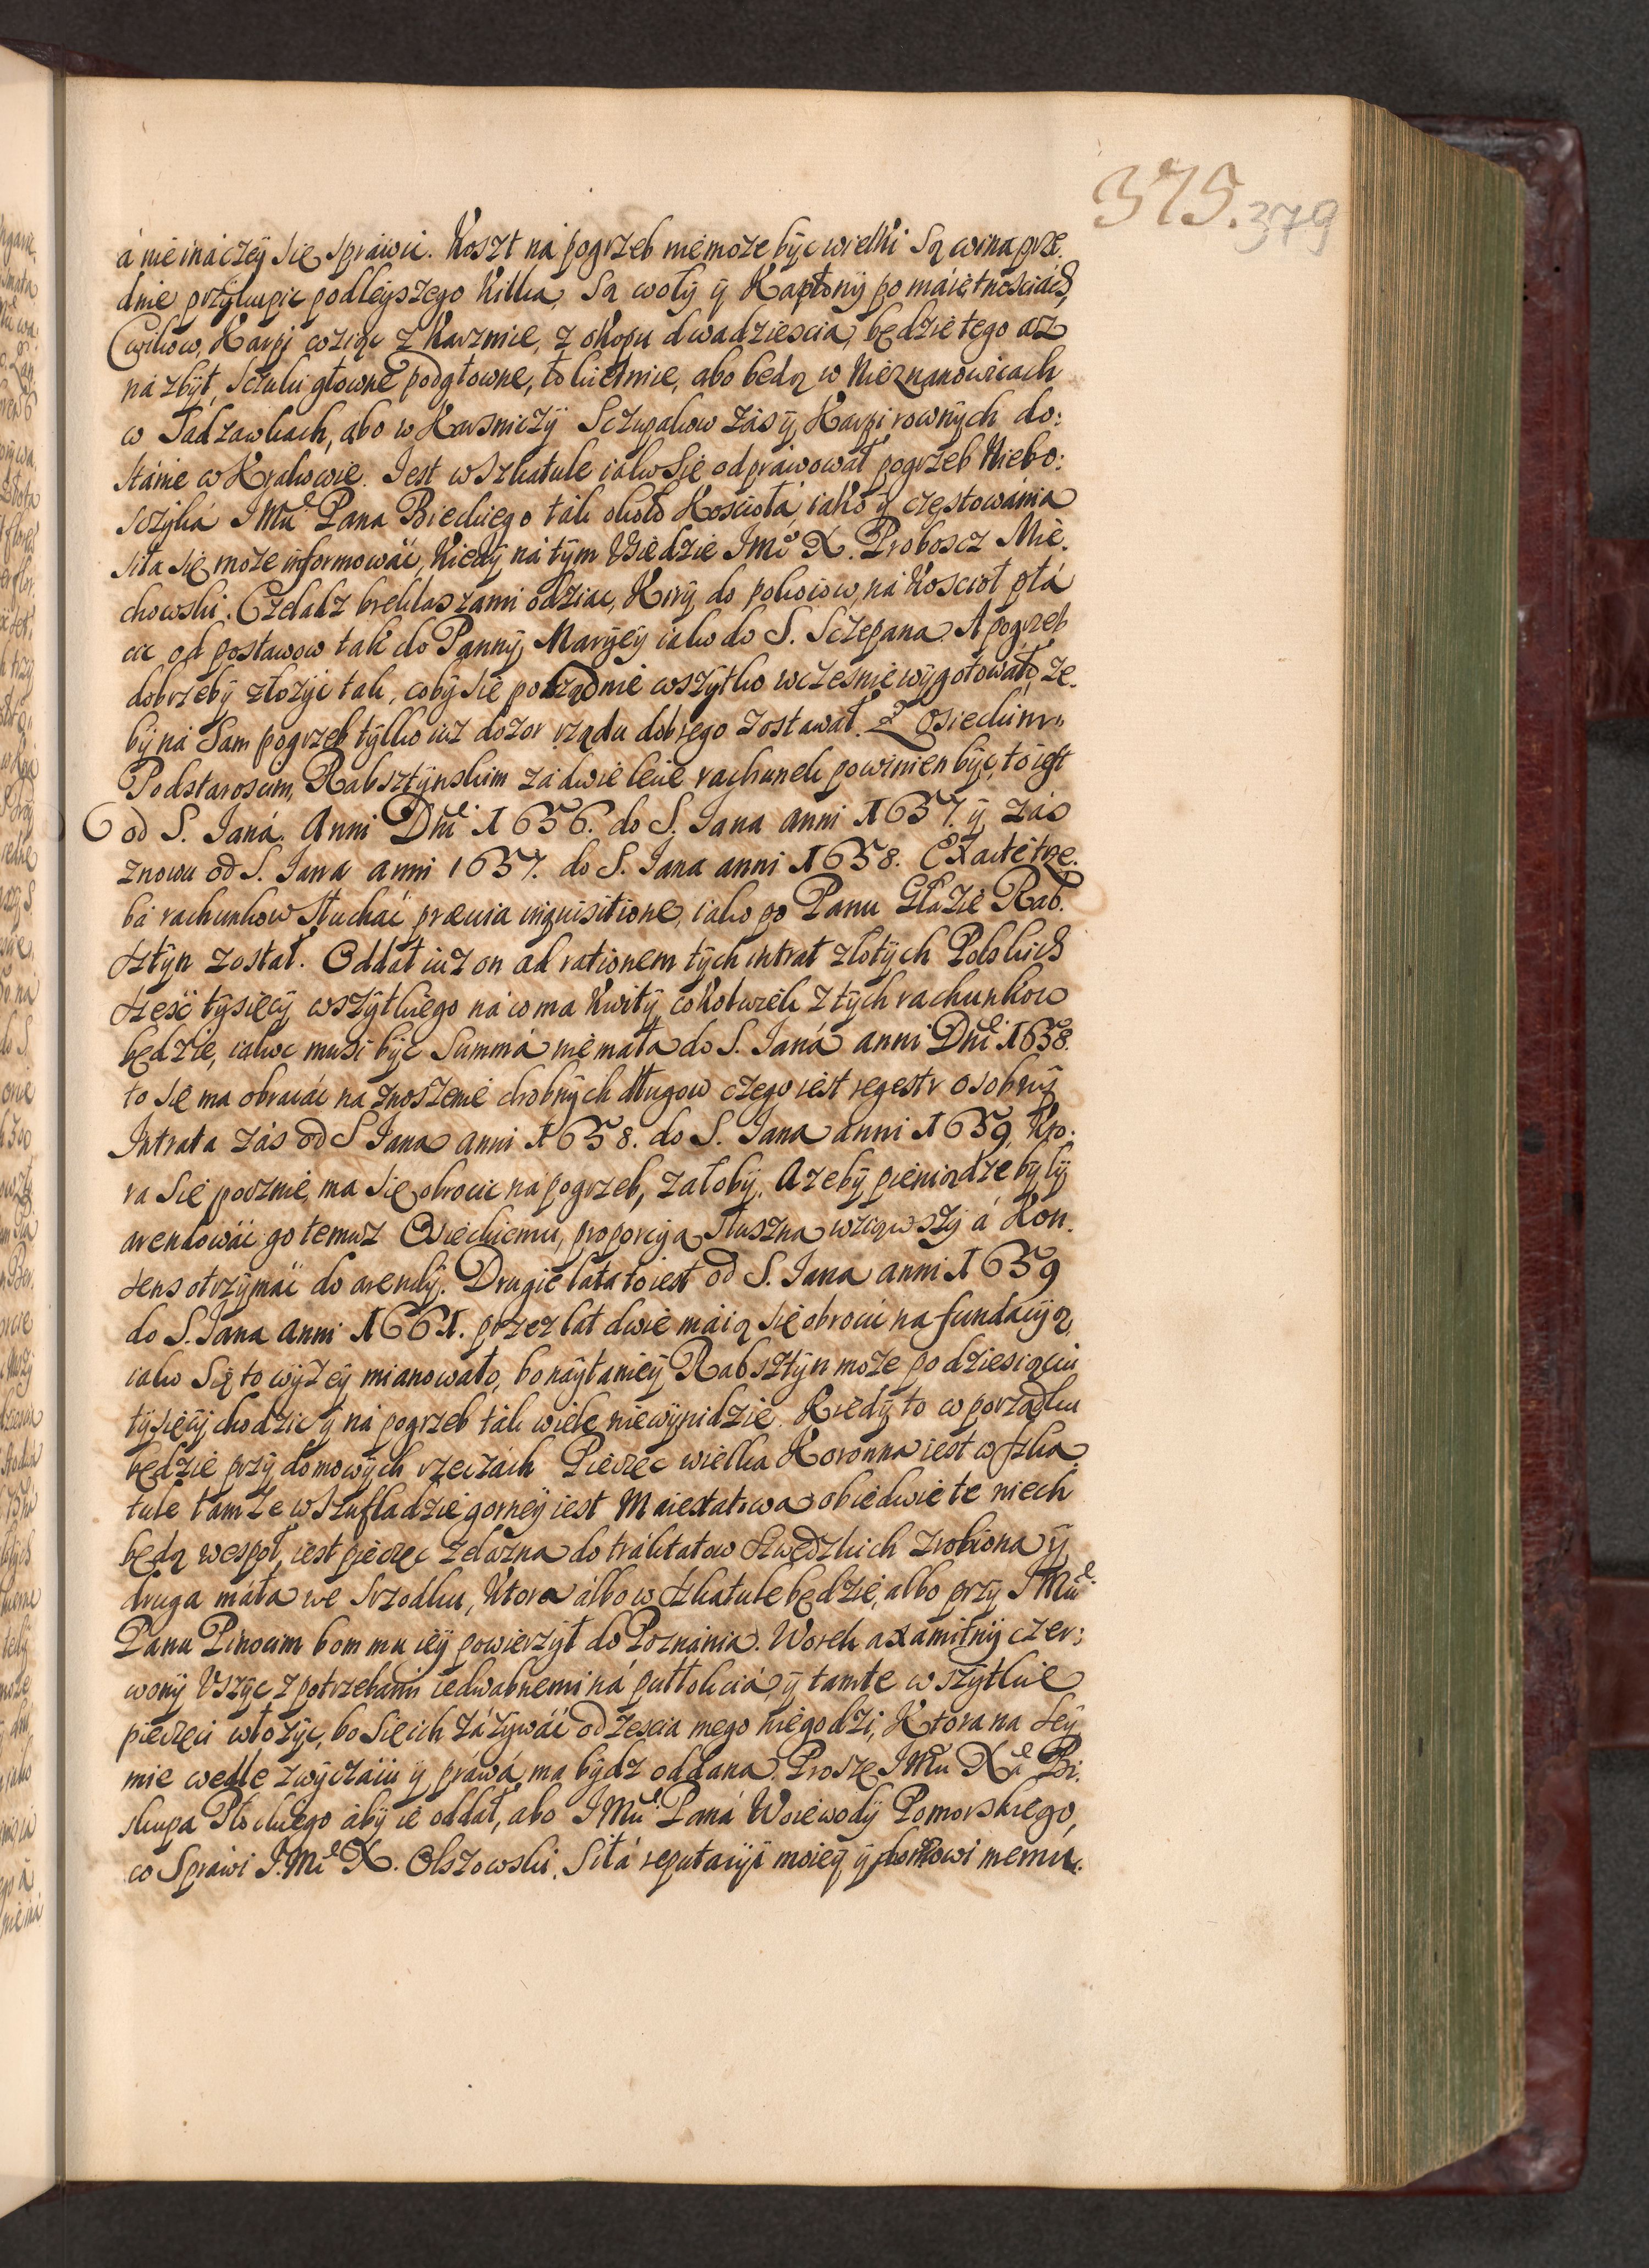 375. 379
á nie ináczey się spráwić. Koszt ná pogrzeb nie może być wielki są wina prze.
dnie przykupić podleyszego kilka, Są woły ÿ Kapłony po máiętnościách,
Cwików, Karpi wziąc z Karzmie, z okopu dwadziescia, będzie tego asz
názbyt, sczuki głowne podgłowne, to kietmie, abo będą w Nieznanowicach
w Sadzawkach, abo w Karsniczÿ Sczupakow zás ÿ Karpi rownÿch do:
stánie w Krakowie. Jest w Szkatule iako się odpráwował pogrzeb Niebo:
sczÿká JMci Pana Bieckiego ták około Kosciołá, iáko ÿ częstowánia
siła się może informowáć, kiedÿ ná tÿm Vsiędzie JMć X. Proboscz Mie.
chowski. Czeladz brekłaszami odziac, Kirÿ do pokoiow, ná Kosciół płá
cić od postawow tak do Pannÿ Marÿeÿ iako do S. Sczepana. A pogrzeb
dobrzebÿ złożÿć tak, cobÿ się porządnie wszÿtko wczesnie wÿgotowáło, że.
bÿ ná sam pogrzeb tÿlko iusz dozor rządu dobrego zostawał. Z Osieckim
Podstaroscim, Rabsztÿnskim zá dwie lecie rachunek powinien bÿć, to iest
od S. Janá Anni Dni 1656. do S. Jana anni 1657. ÿ zás
znowu od S. Jana anni 1657. do S. Jana anni 1658. Exacte trze.
bá rachunkow słucháć prævia inquisitione, iako po Panu Głazie Rab.
sztÿn został. Oddał iusz on ad rationem tÿch intrat złotÿch Polskich
sześć tÿsięcÿ wszÿtkiego ná co ma kwitÿ, cokolwiek z tÿch rachunkow
będzie, iakoż musi bÿć Summá nie máła do S. Janá anni Dni 1658.
to się ma obracáć na znoszenie drobnÿch długow czego iest regestr osobnÿ
Intrata zás od S Jana anni 1658. do S. Jana anni 1659. kto.
ra się pocznie, ma się obrocić ná pogrzeb, załobÿ. A zebÿ pieniądze bÿłÿ
arendowáć go temusz Osieckiemu, proporcÿa słuszna wziąwszÿ á kon.
sens otrzÿmáć do arendÿ. Drugie láta to iest od S. Jana anni 1659
do S. Jana anni 1661. przez lat dwie máią się obrocić na fundacÿą,
iako się to wÿżeÿ mianowáło, bo naÿtánieÿ Rabsztÿn może po dziesiąciu
tÿsięcÿ chodzić ÿ ná pogrzeb ták wiele niewÿnidzie. Kiedÿ to w porządku
będzie przÿ domowÿch rzeczách Pieczęć wielka Koronna iest w szka
tule tamże w Szufladzie gorneÿ iest Maiestatowa obiedwie te niech
będą wespoł, iest pieczęć żelázna do tráktatow Szwedzkich zrobiona ÿ
druga máła we srzodku, ktora álbo w szkatule będzie, albo przÿ JMci
Panu Pinocim bom mu ieÿ powierzÿł do Poznánia. Worek axamitnÿ czer:
wonÿ Vszÿć z potrzebami iedwabnemi ná pułłokciá, ÿ tamte wszÿtkie
pieczęci włożÿć, bo się ich zázÿwáć od zescia mego niegodzi, Ktora na Seÿ
mie wedle zwÿczáiu ÿ práwá, ma bÿdź oddana. Proszę JMci Xa Bi.
skupa Płockiego ábÿ ie oddał, abo JMci Paná Woiewodÿ Pomorskiego,
co spráwi J.Mć X. Olszowski. Siłá reputacÿi moieÿ ÿ domowi memu.